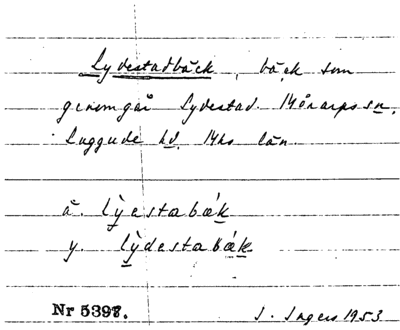 Lydestadbäck, bäck som
genomgår Lydestad. Hörarps sn,
Luggude hd, Mhs län.
ä. lỳestabæk
y. lỳdestabæk
Nr 5397. I. Ingers 1953